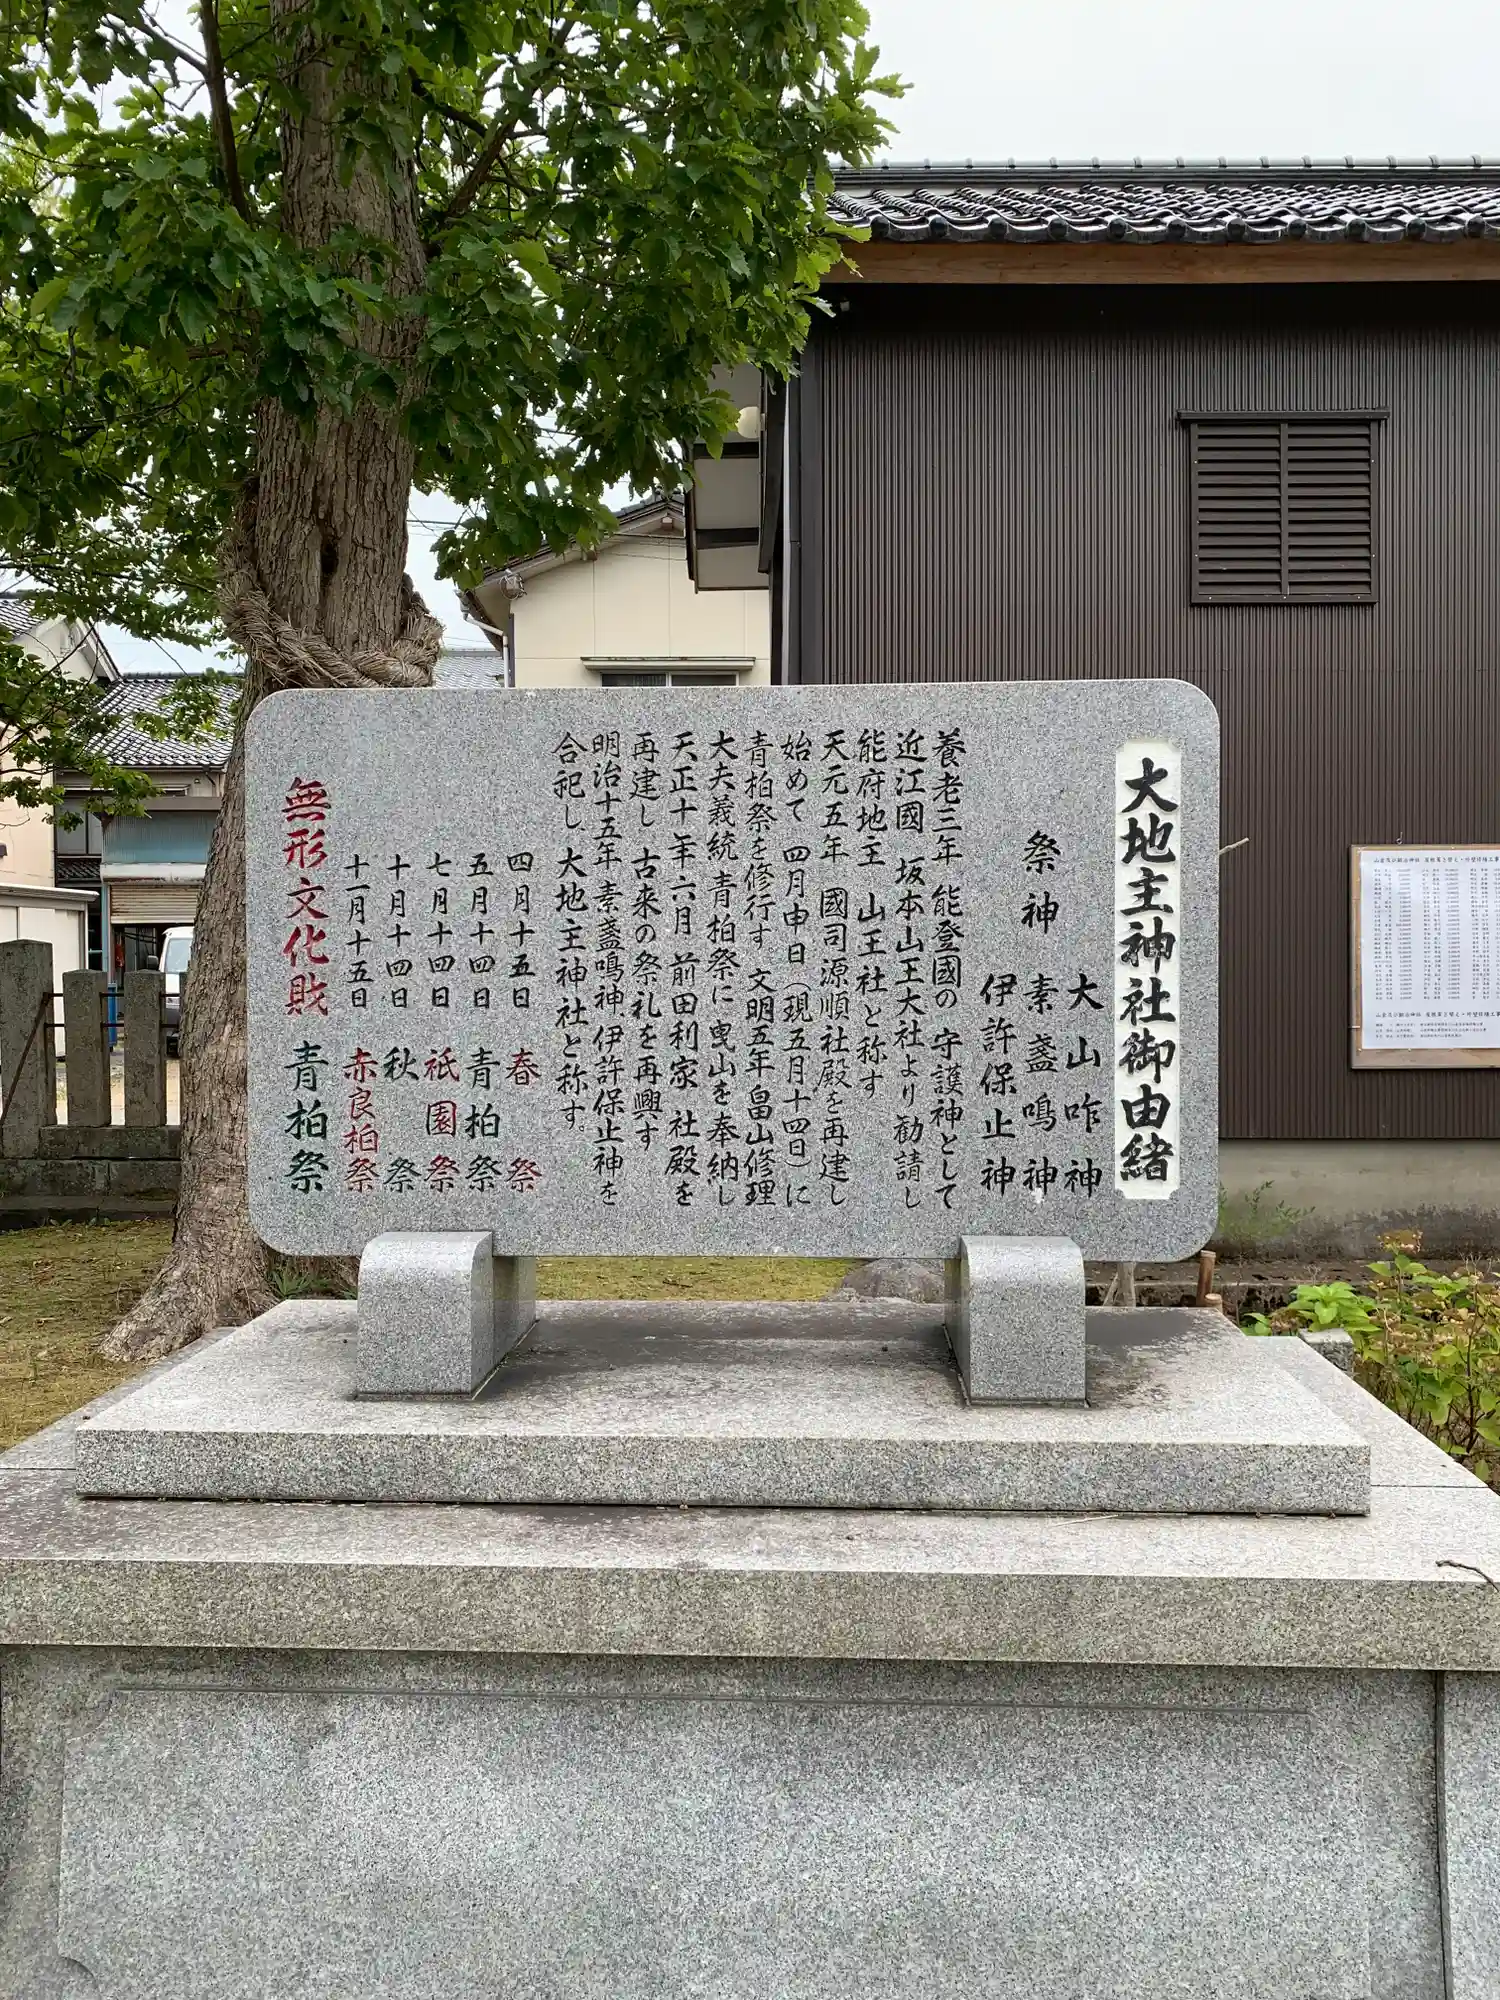 大地主神社御由緒
大山咋神
祭神 素盞鳴神
伊許保止神
養老三年 能登國の 守護神として
近江國 坂本山王大社より勧請し
能府地主 山王社と称す
天元五年 國司源順社殿を再建し
始めて 四月申日(現五月十四日)に
青柏祭を修行す。文明五年 畠山修理
大夫義統青柏祭に 曳山を奉納し
天正十年六月 前田利家 社殿を
再建し 古来の祭礼を再興す
明治十五年 素盞鳴神、伊許保止神を
合祀し、大地主神社と称す。
四月十五日 春祭
五月十四日 青柏祭
七月十四日 祇園祭
十月十四日 秋祭
十一月十五日 赤良柏祭
無形文化財 青柏祭